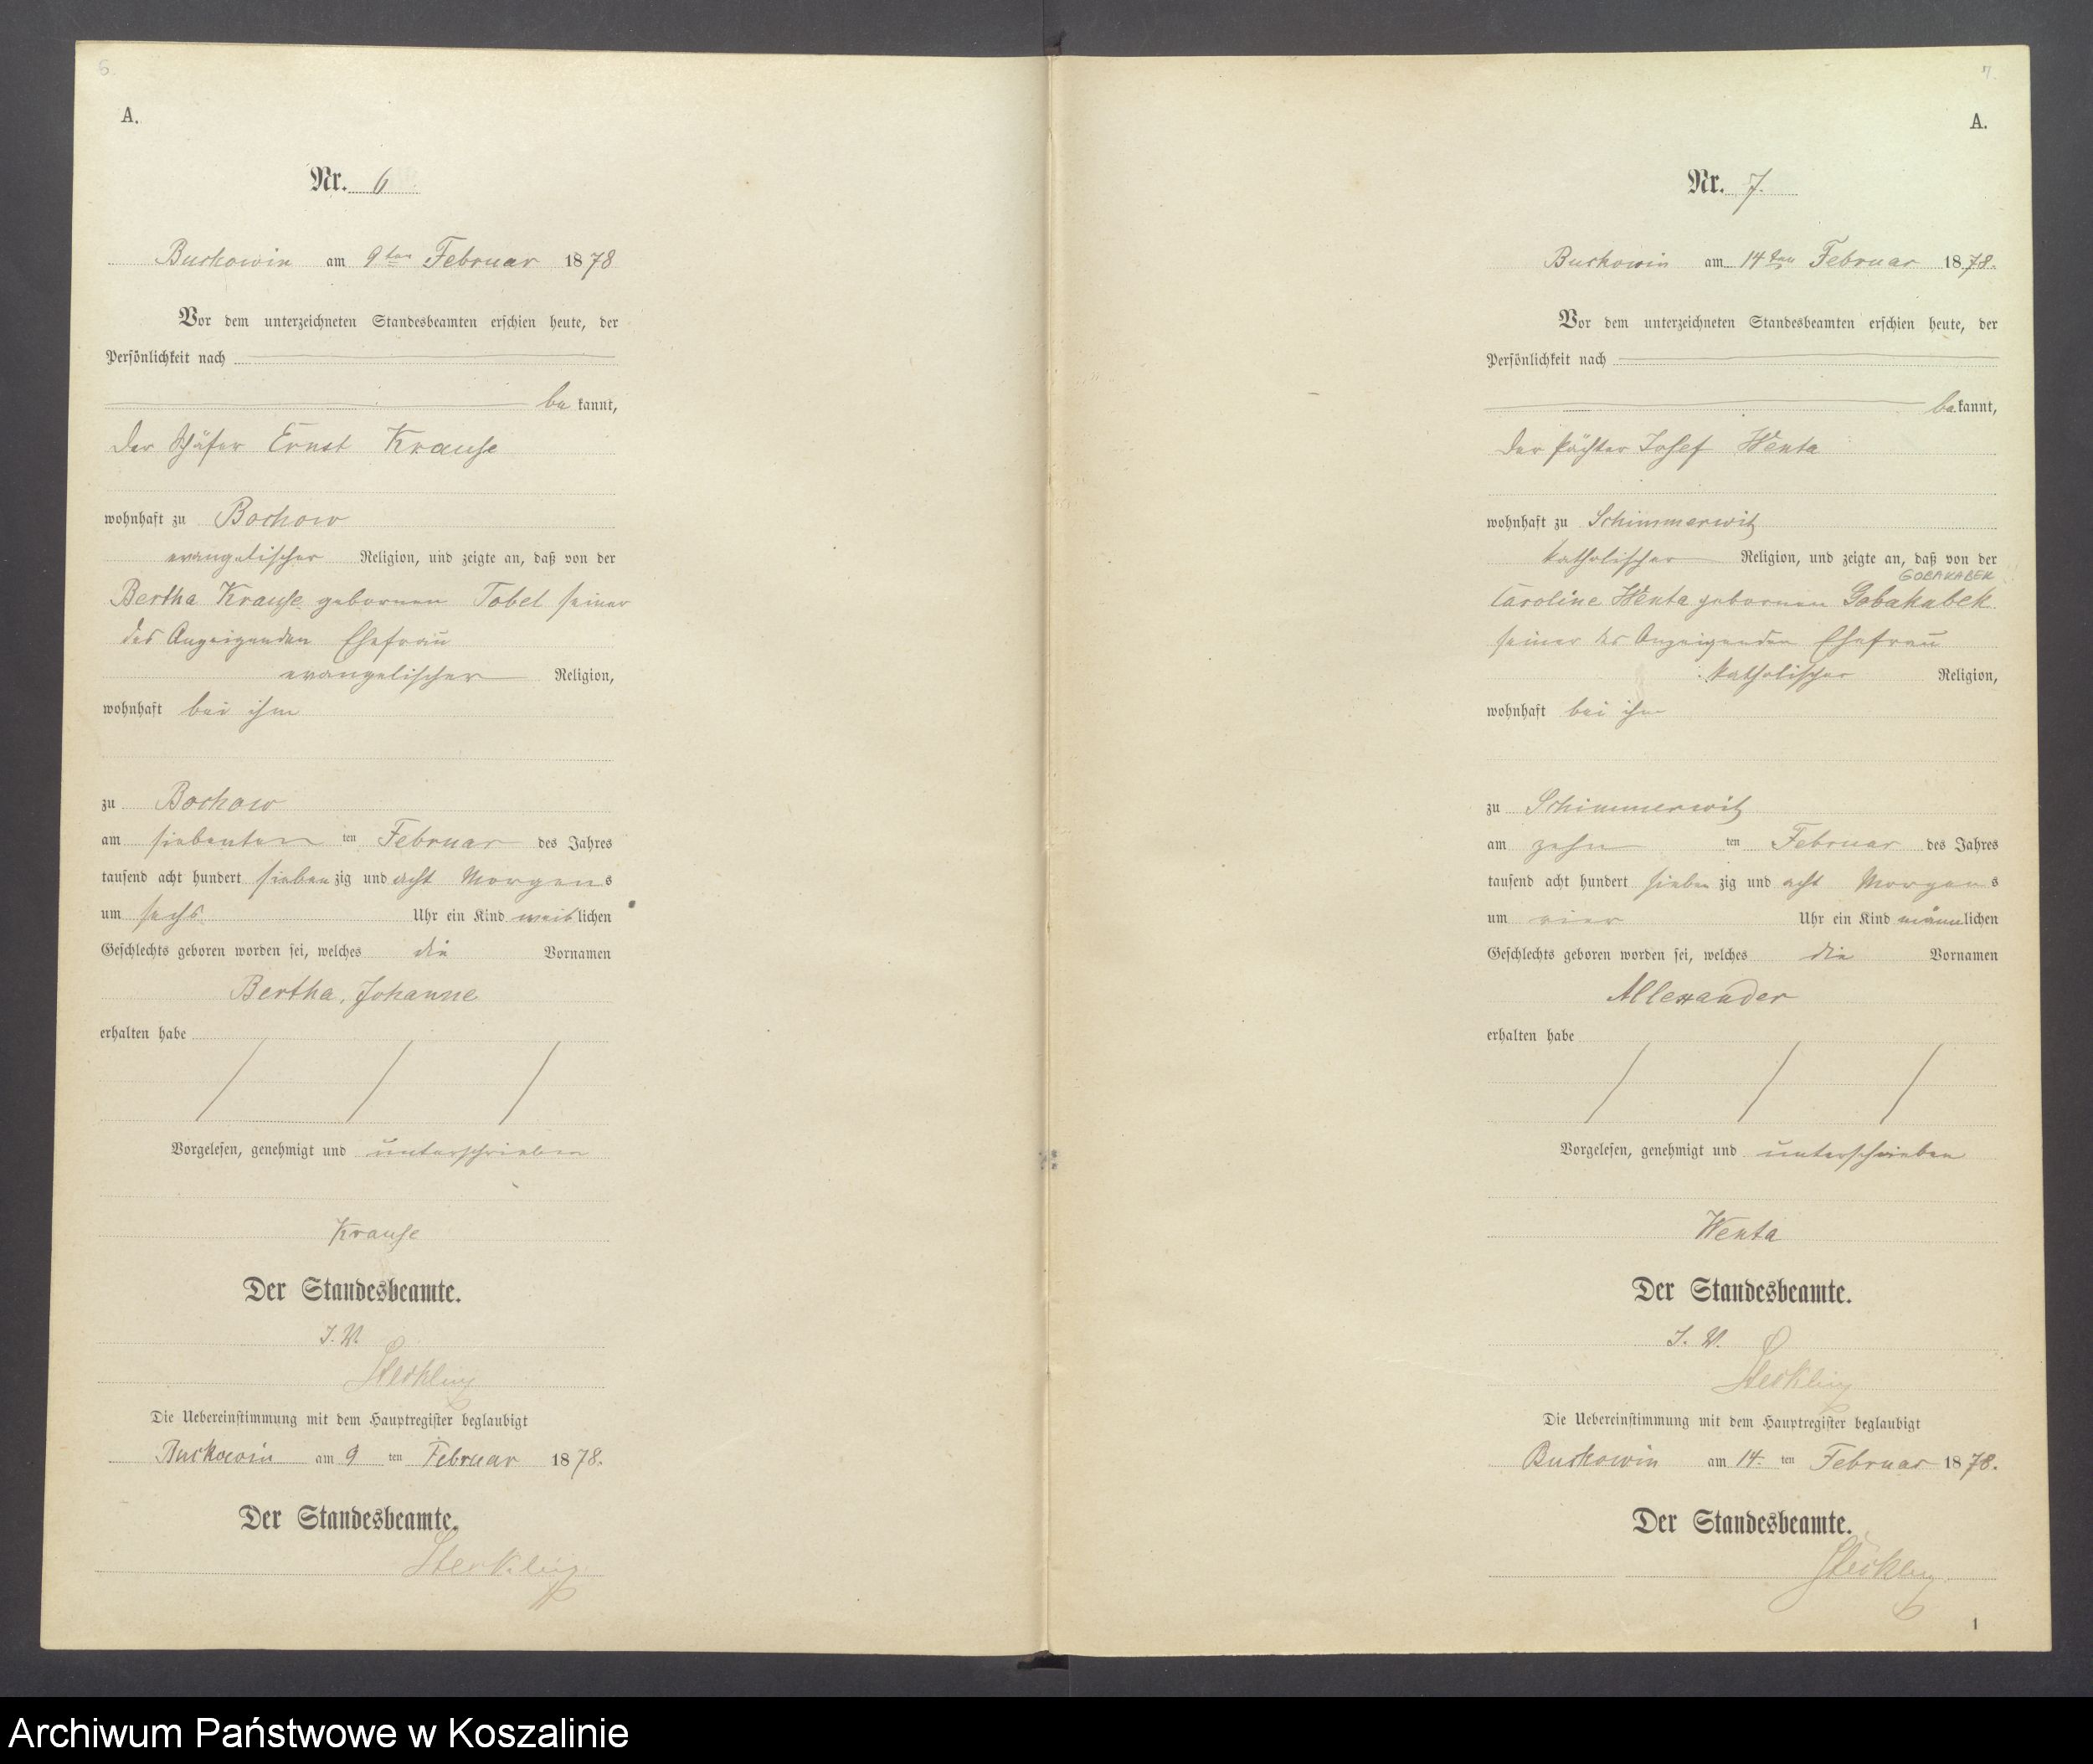 6.
A.
Nr. 6
Buckowin am 9ten Februar 1878
Vor dem unterzeichneten Standesbeamten erschien heute, der
Persönlichkeit nach
be kannt,
der Schäfer Ernst Krause
wohnhaft zu Bochow
evangelischer Religion, und zeigte an, daß von der
Bertha Krause geborenen Tobel seiner
des Anzeigenden Ehefrau
evangelischer Religion,
wohnhaft bei ihm
zu Bochow
am siebenten ten Februar des Jahres
tausend acht hundert sieben zig und acht Morgens
um sechs Uhr ein Kind weiblichen
Geschlechts geboren worden sei, welches die Vornamen
Bertha, Johanne
erhalten habe
Vorgelesen, genehmigt und unterschrieben
Krause
Der Standesbeamte.
I. V.
Steckling
Die Uebereinstimmung mit dem Hauptregister beglaubigt
Buckowin am 9 ten Februar 1878.
Der Standesbeamte.
Steckling
7.
A.
Nr. 7.
Buckowin am 14ten Februar 1878.
Vor dem unterzeichneten Standesbeamten erschien heute, der
Persönlichkeit nach
bekannt,
der Pächter Josef Wenta
wohnhaft zu Schimmerwitz
katholischer Religion, und zeigte an, daß von der
GOBAKABEK
Caroline Wenta geborenen Gobakabek
seiner des Anzeigenden Ehefrau
katholischer Religion,
wohnhaft bei ihm
zu Schimmerwitz
am zehn ten Februar des Jahres
tausend acht hundert sieben zig und acht Morgens
um vier Uhr ein Kind männlichen
Geschlechts geboren worden sei, welches die Vornamen
Allexander
erhalten habe
Vorgelesen, genehmigt und unterschrieben
Wenta
Der Standesbeamte.
I. V.
Steckling
Die Uebereinstimmung mit dem Hauptregister beglaubigt
Buckowin am 14. ten Februar 1878.
Der Standesbeamte.
Steckling
1
Archiwum Państwowe w Koszalinie